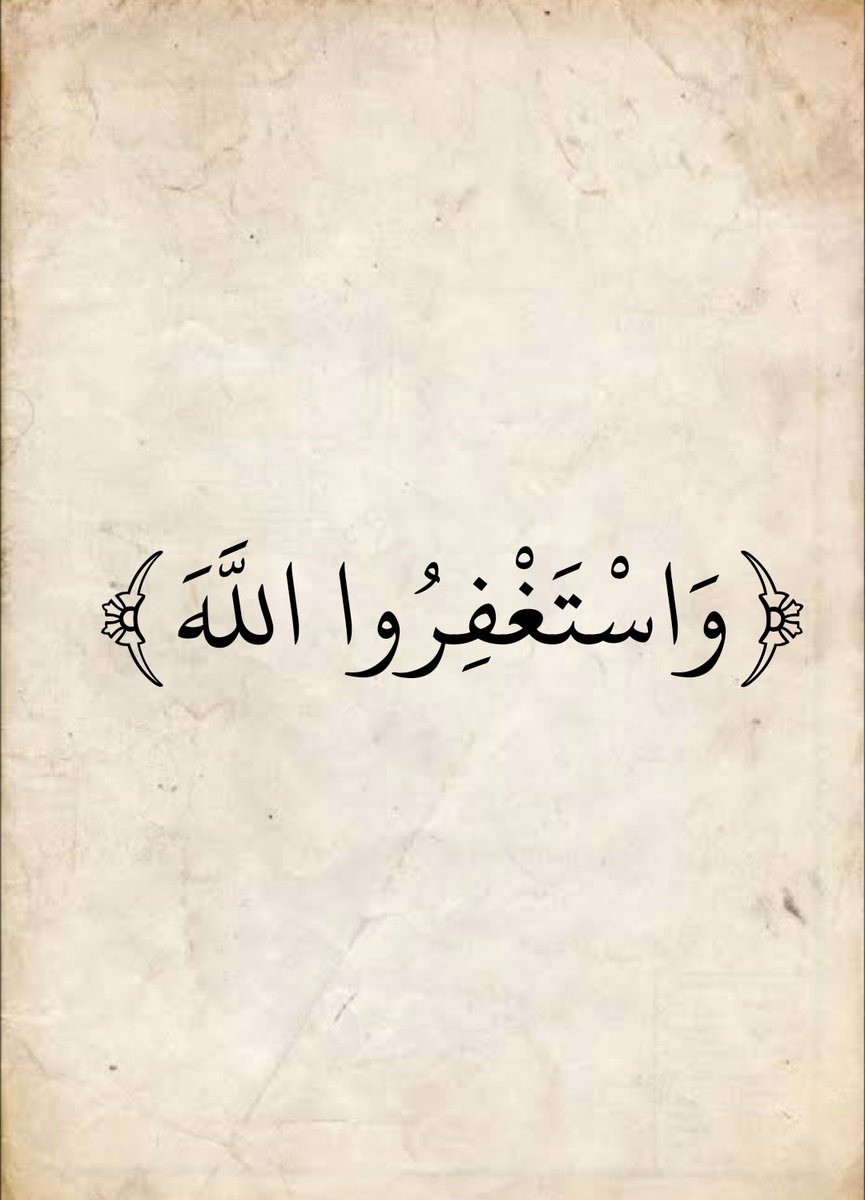 ﴿ وَاسْتَغْفِرُوا اللَّهَ ﴾